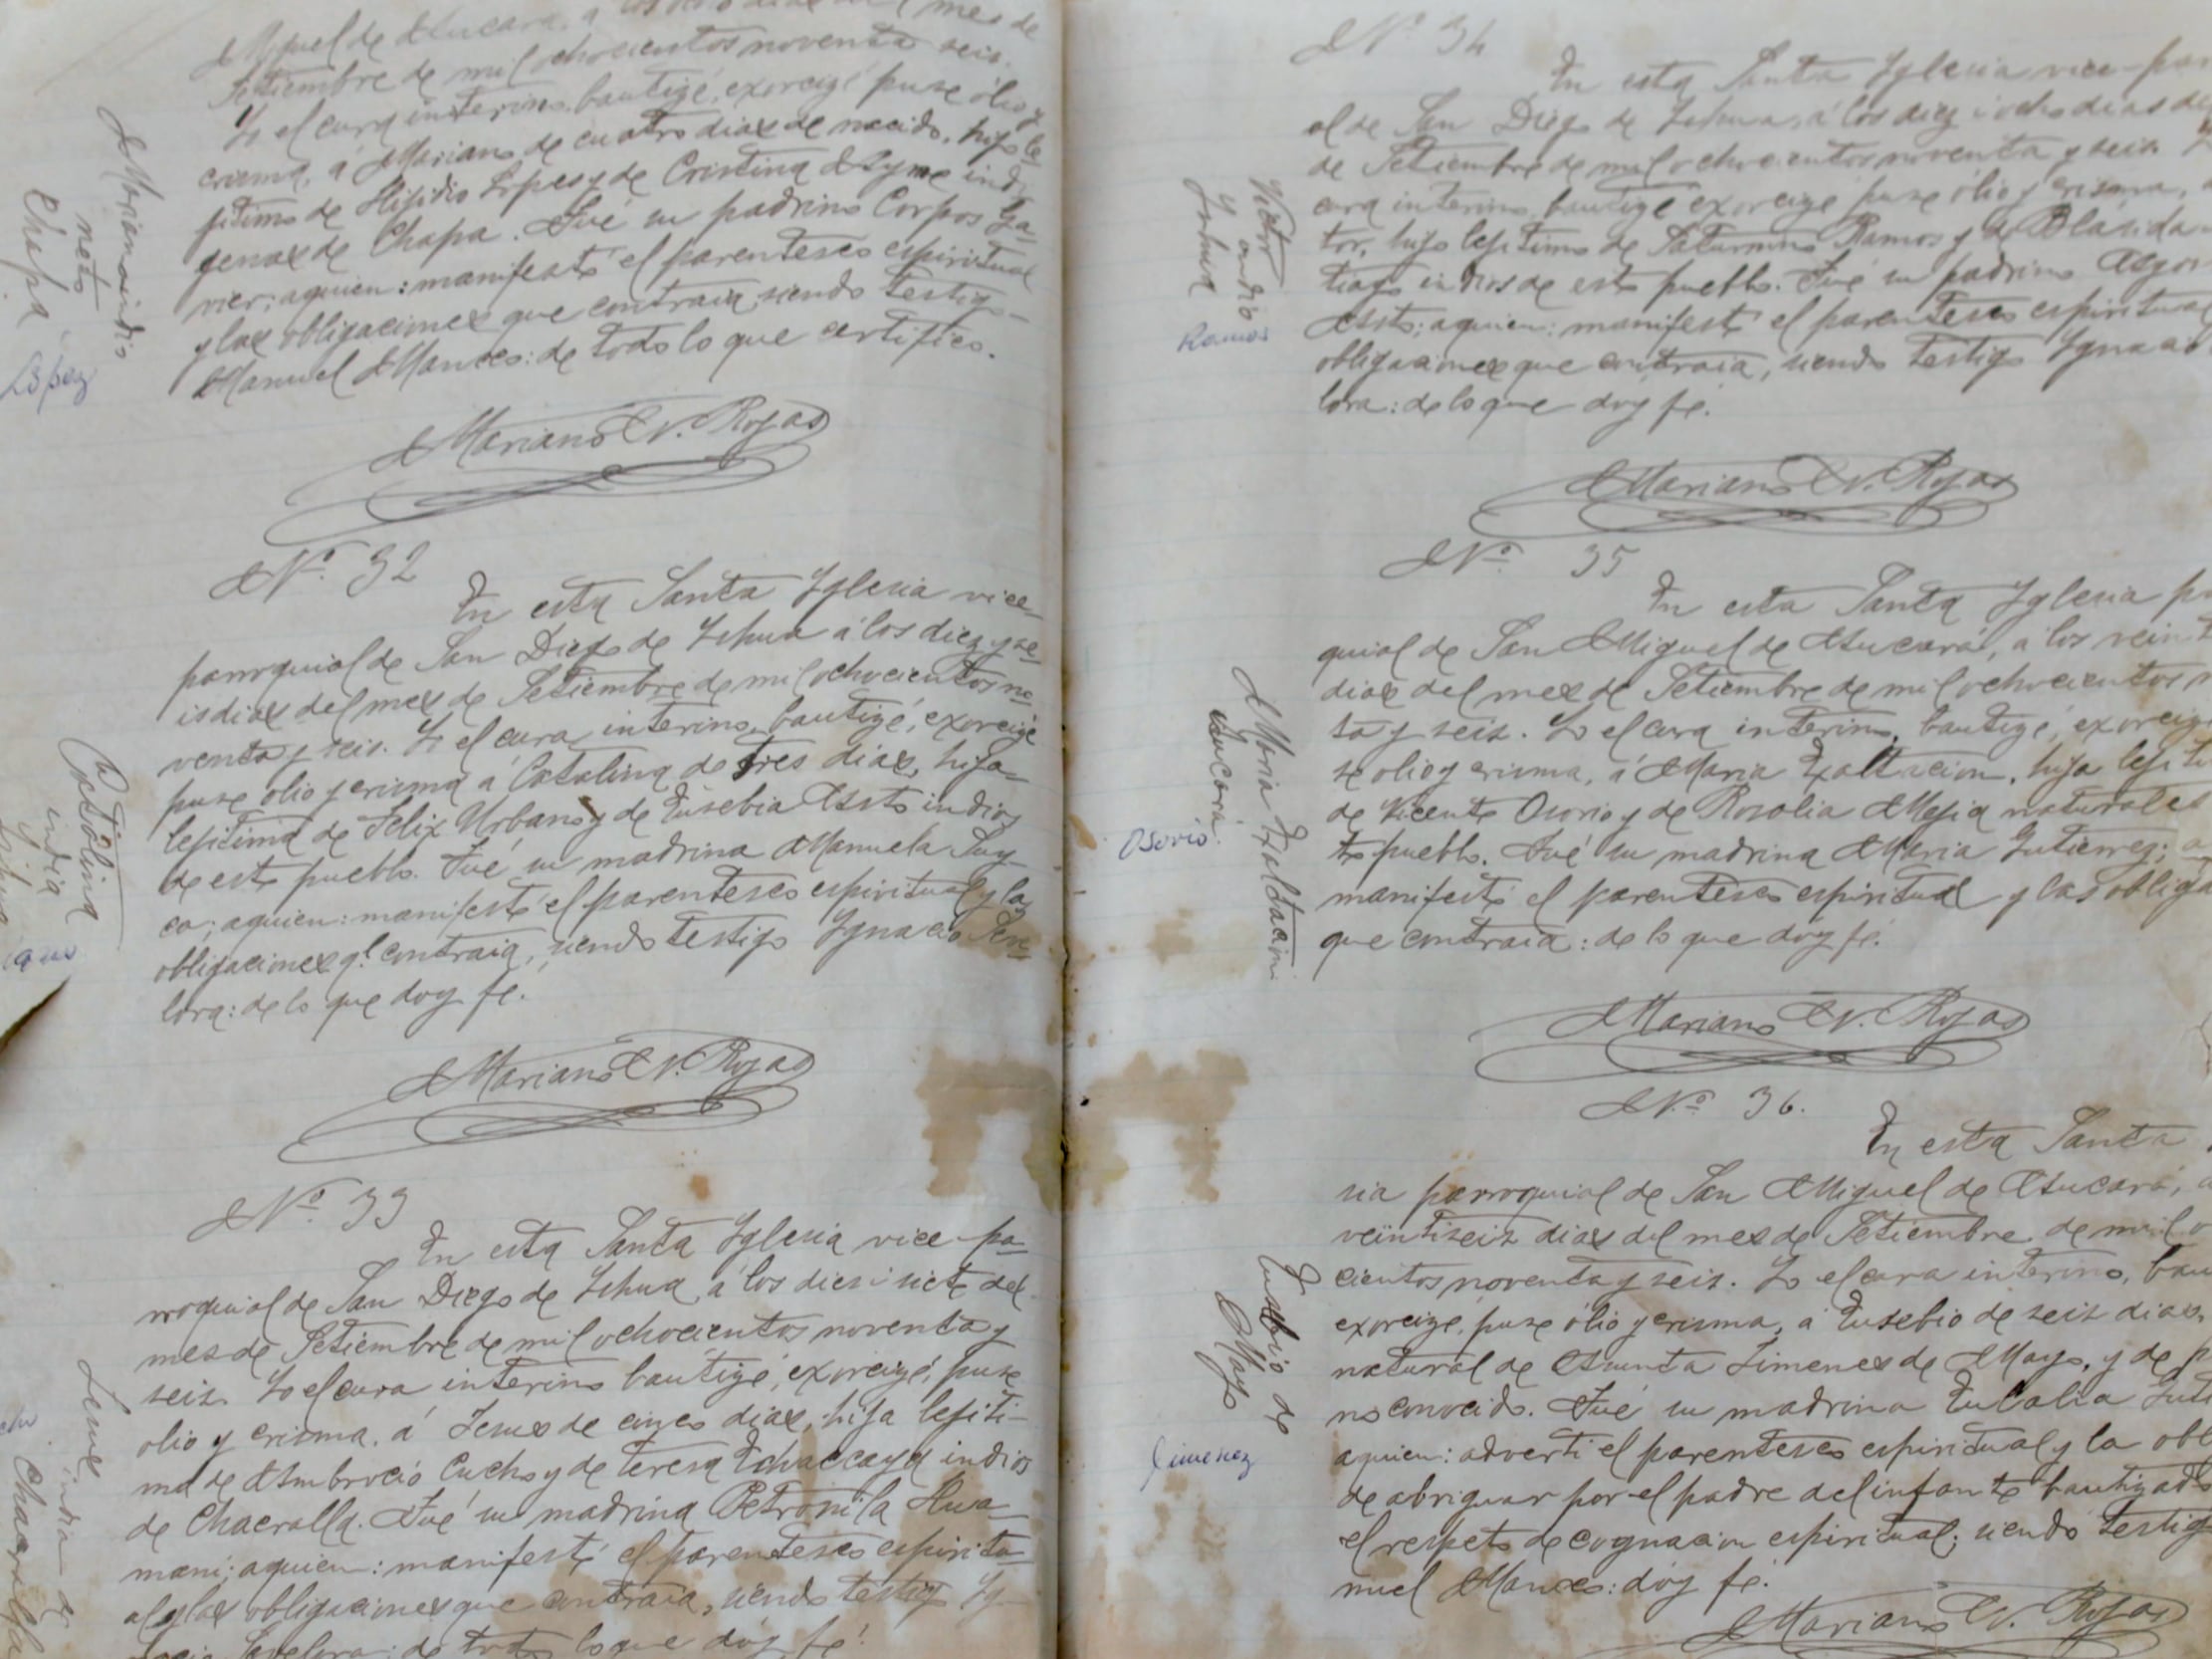 Miguel de Aucará, a los ocho dias del mes de
Setiembre de mil ochocientos noventa seis.
Yo el cura interino, bautizé, exorcizé puse óleo y
crisma, á Mariano de cuatro dias de nacido, hijo le-
jitimo de Lopes y de Cristina indi-
genas de Chapa. Fué su padrino Corpos Ga-
vier; aquien: manifesté el parentesco espiritual
y las obligaciones que contraia, siendo testigo
Manuel Mances: de todo lo que certifico.
Mariano N. Rojas
Mariano indio
neto
Chapa
López
Nº 32
En esta Santa Yglesia vice-
parroquial de San Diego de Yshua á los diez y se-
is dias del mes de Setiembre de mil ochocientos no-
venta y seis. Yo el cura interino, bautizé, exorcizé
puse olio y crisma á Catalina de tres dias, hija
lejitima de Felix Urbano y de Eusebia Asto indios
de este pueblo. Fué su madrina Manuela Say-
co; aquien: manifesté el parentesco espiritual y las
obligaciones q.e contraia, siendo testigo Ygnacio Sere-
lora: de lo que doy fe.
Mariano N. Rojas
Catalina
india
Nº 33
En esta Santa Yglesia vice-pa-
rroquial de San Diego de Yshua, a los diesisiete del
mes de Setiembre de mil ochocientos noventa y
seis. Yo el cura interino bautizé, exorcizé, puse
olio y crisma, á Jesus de cinco dias, hija lejiti-
ma de Ambrocio Cucho y de Teresa Echaccaya indios
de Chacralla. Fué su madrina Petronila Hua-
mani; aquien: manifesté el parentesco espiritu-
al y las obligaciones que contraia, siendo testigo Yg-
nacio Serelora: de todo lo que doy fé.
Jesus india de
Chacralla
Nº 34
En esta Santa Yglesia vice-par
al de San Diego de Yshua, á los diez i ocho dias de
de Setiembre de mil ochocientos noventa y seis. Y
cura interino, bautizé exorcizé puse ólio y crisma,
tor, hijo lejitimo de Saturnino Ramos y de Blasida
tiago indios de este pueblo. Fué su padrino
Asto; aquien: manifesté el parentesco espiritual
obligaciones que contraia, siendo testigo Ygnacio
lora: de lo que doy fé.
Mariano N. Rojas
Victor
indio
Yshua
Ramos
Nº 35
En esta Santa Yglesia pa
quial de San Miguel de Aucará, a los veint
dias del mes de Setiembre de mil ochocientos n
ta y seis. Yo el cura interino, bautizé, exorciz
se olio y crisma, á Maria Exaltacion, hija lejiti
de Vicente Osorio y de Rosalia Mejia naturales
te pueblo. Fué su madrina Maria Gutierrez; a
manifesté el parentesco espiritual y las obliga
que contraia: de lo que doy fé.
Mariano N. Rojas
Maria Exaltacion
Aucara
Osorio
Nº 36.
En esta Santa
sia parroquial de San Miguel de Aucará, a
veintiseis dias del mes de Setiembre de mil o
cientos noventa y seis. Yo el cura interino, bau
exorcizé, puse ólio y crisma, á Eusebio de seis dias,
natural de Asunta Jimenes de Mayo, y de p
no conocido. Fué su madrina Eulalia Guti
aquien: adverti el parentesco espiritual y la obl
de abriguar por el padre del infante bautizado
el respeto de cognacion espiritual; siendo testig
nuel Mances: doy fé.
Mariano N. Rojas
Eusebio de
Mayo
Jimenez